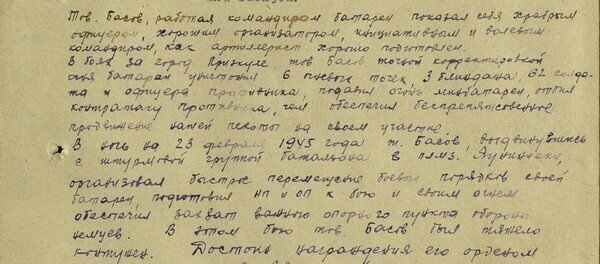 Тов. Басов, работая командиром батареи показал себя храбрым
офицером, хорошим организатором, инициативным и волевым
командиром, как артиллерист хорошо подготовлен.
В боях за город Приэкуле тов Басов точной корректировкой
огня батареи уничтожил 6 огневых точек, 3 блиндажа, 62 солда-
та и офицера противника, подавил огонь минбатареи, отбил
контратаку противника, чем обеспечил беспрепятственное
продвижение нашей пехоты на своем участке.
В ночь на 23 февраля 1945 года т. Басов, выдвинувшись
с штурмовой группой батальона в
организовал быстрое перемещение боевых порядков своей
батареи, подготовил НП и ОП к бою и своим огнем
обеспечил захват важного опорного пункта обороны
немцев. В этом бою тов. Басов был тяжело
контужен. Достоин награждения его орденом